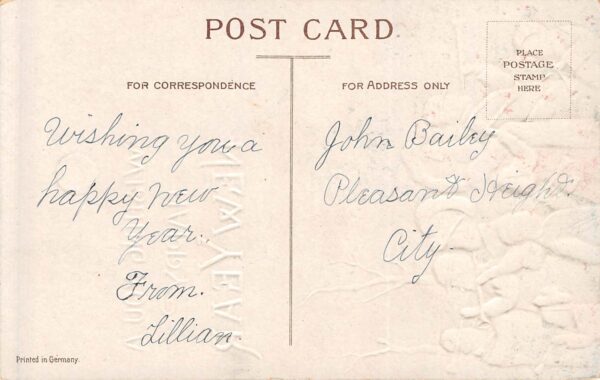 POST CARD
FOR CORRESPONDENCE
FOR ADDRESS ONLY
PLACE
POSTAGE
STAMP
HERE
Wishing you a
happy New
Year.
From.
Lillian.
John Bailey
Pleasant Height.
City.
Printed in Germany.